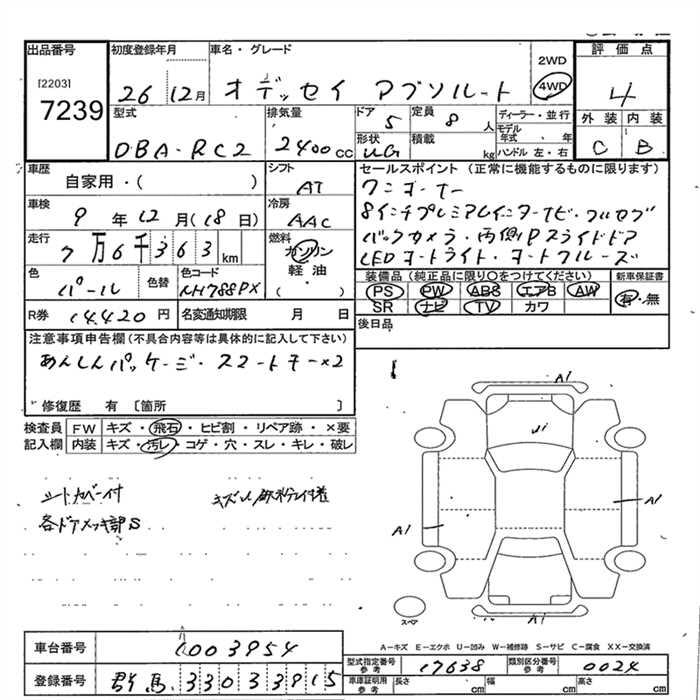 出品番号
[2203]
7239
初度登録年月
26 12月
車名・グレード
オデッセイ アブソルート
2WD
4WD
評価点
4
外装 内装
C B
型式
DBA-RC2
排気量
2400cc
ドア
5
定員
8人
形状
UG
積載
kg
ディーラー・並行
モデル年式 年
ハンドル 左・右
車歴
自家用・( )
シフト
AT
車検
9年12月(18日)
冷房
AAC
走行
7万6千363km
燃料
ガソリン
軽油・
( )
色
パール
色替
色コード
NH788PX
R券
14420円
名変通知期限
月 日
セールスポイント(正常に機能するものに限ります)
ワンオーナー
8インチプレミアムインターナビ・フルセグ
バックカメラ・両側Pスライドドア
LEDオートライト・オートクルーズ
装備品(純正品に限り○をつけてください)
PS PW ABS エアB AW
SR ナビ TV カワ
新車保証書
有・無
後日品
注意事項申告欄(不具合内容等は具体的に記入して下さい)
あんしんパッケージ・スマートキー×2
修復歴 有 [箇所 ]
検査員記入欄
FW キズ・飛石・ヒビ割・リペア跡・×要
内装 キズ・汚レ・コゲ・穴・スレ・キレ・破レ
シートカバー付
各ドアメッキ部S
A1
U1
A1
A1
A1
スペア
A-キズ E-エクボ U-凹み W-補修跡 S-サビ C-腐食 XX-交換済
車台番号
1003954
登録番号
群馬 330 33915
型式指定番号 参考
17638
類別区分番号 参考
0024
車庫証明用 参考
長さ cm
幅 cm
高さ cm